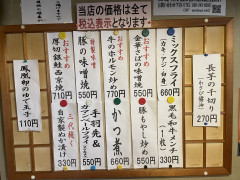 当店の価格は全て
税込表示となります。
長芋の千切り
(わさび醤油)
270円
ミックスフライ
(カキ・アジ・白身)
660円
黒毛和牛メンチ
(一枚)
330円
おすすめ
金華さばの味噌煮
550円
豚もやし炒め
550円
おすすめ
牛のホルモン炒め
770円
かつ煮
660円
特製味噌
豚の味噌焼
550円
手羽先&
550円
おすすめ
厚切銀鮭西京焼
710円
三代継ぐ
自家製ぬか漬け
330円
鳳凰卵のゆで玉子
110円